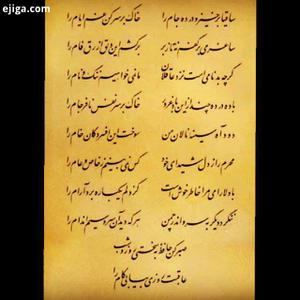 ejiga.com
ساقیا برخیز و درده جام را خاک بر سر کن غم ایام را
ساغر می بر کفم نه تا ز بر برکشم این دلق ازرق فام را
گرچه بدنامی است نزد عاقلان ما نمی‌خواهیم ننگ و نام را
باده درده چند از این باد غرور خاک بر سر نفس نافرجام را
دود آه سینه نالان من سوخت این افسردگان خام را
محرم راز دل شیدای خود کس نمی‌بینم ز خاص و عام را
با دلارامی مرا خاطر خوش است کز دلم یکباره برد آرام را
ننگرد دیگر به سرو اندر چمن هر که دید آن سرو سیم اندام را
صبر کن حافظ به سختی روز و شب
عاقبت روزی بیابی کام را